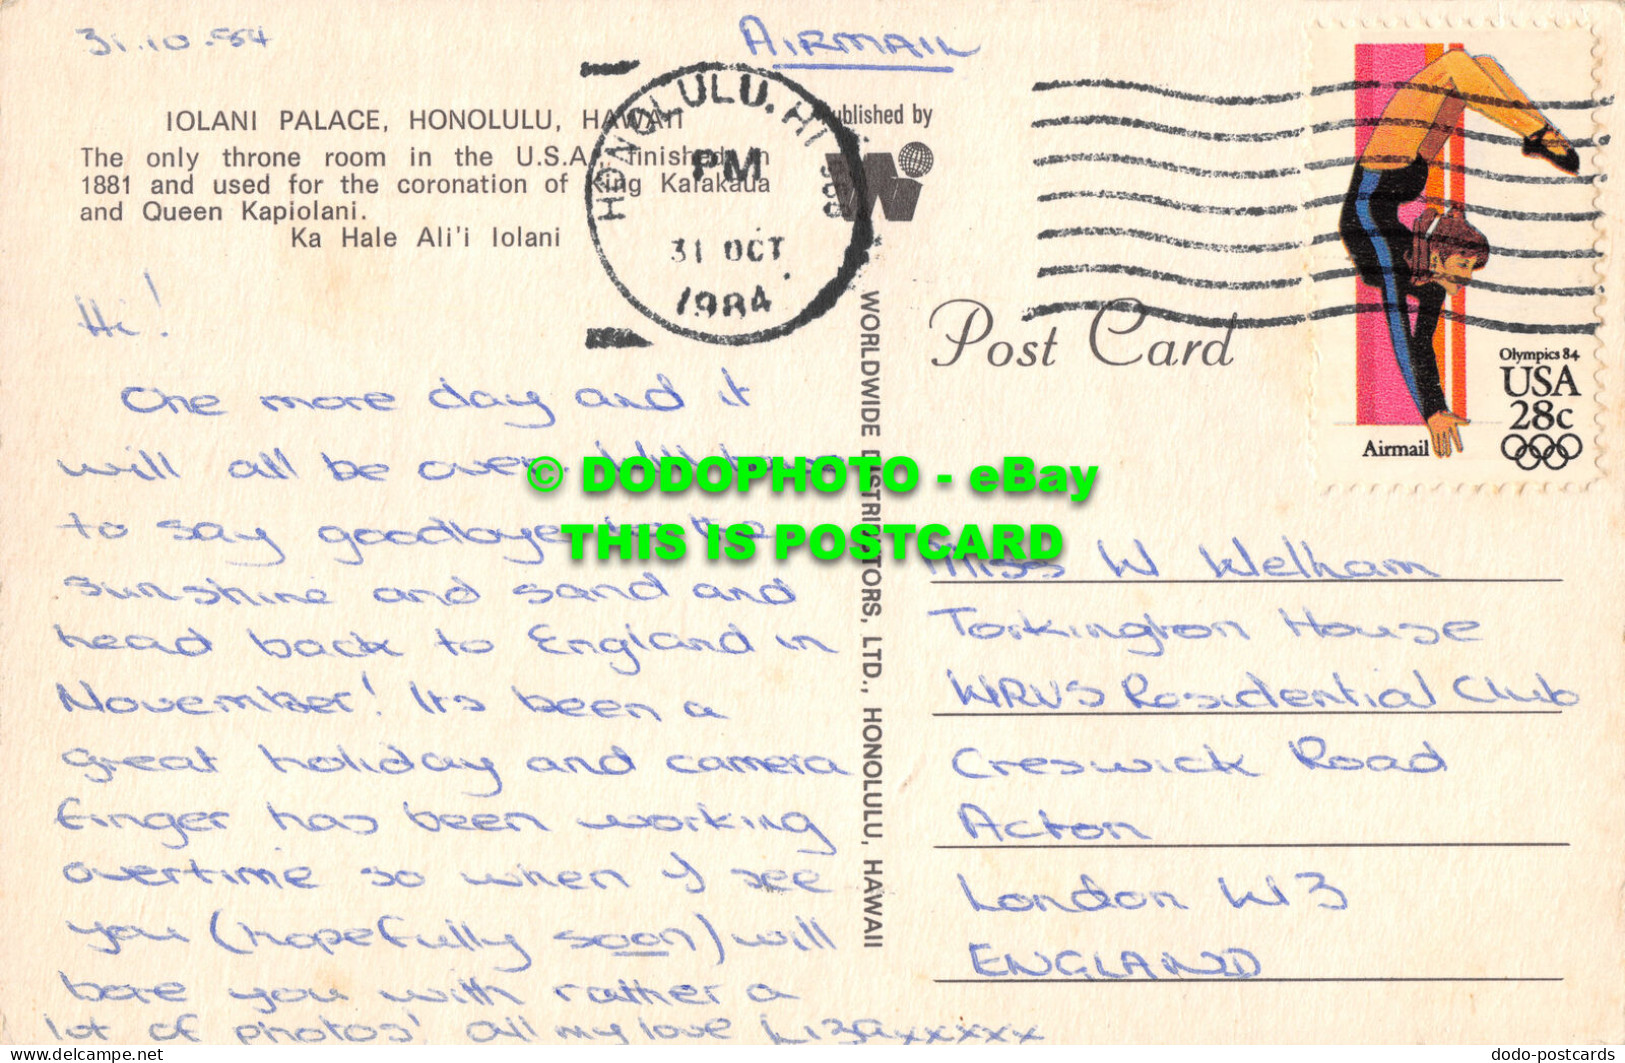 31.10.84
AIRMAIL
IOLANI PALACE, HONOLULU, HAWAII
The only throne room in the U.S.A., finished in
1881 and used for the coronation of King Kalakaua
and Queen Kapiolani.
Ka Hale Ali'i Iolani
HONOLULU, HI
PM
31 OCT
1984
Published by
WORLDWIDE DISTRIBUTORS, LTD., HONOLULU, HAWAII
Post Card
Olympics 84
USA
28c
Airmail
Hi!
One more day and it
will all be over.
to say goodbye to the
sunshine and sand and
head back to England in
November! Its been a
great holiday and camera
finger has been working
overtime so when I see
you (hopefully soon) will
bore you with rather a
lot of photos! all my love Lizaxxxxx
Miss W Welham
Torkington House
WRVS Residential Club
Creswick Road
Acton
London W3
ENGLAND
© DODOPHOTO - eBay
THIS IS POSTCARD
delcampe.net
dodo-postcards